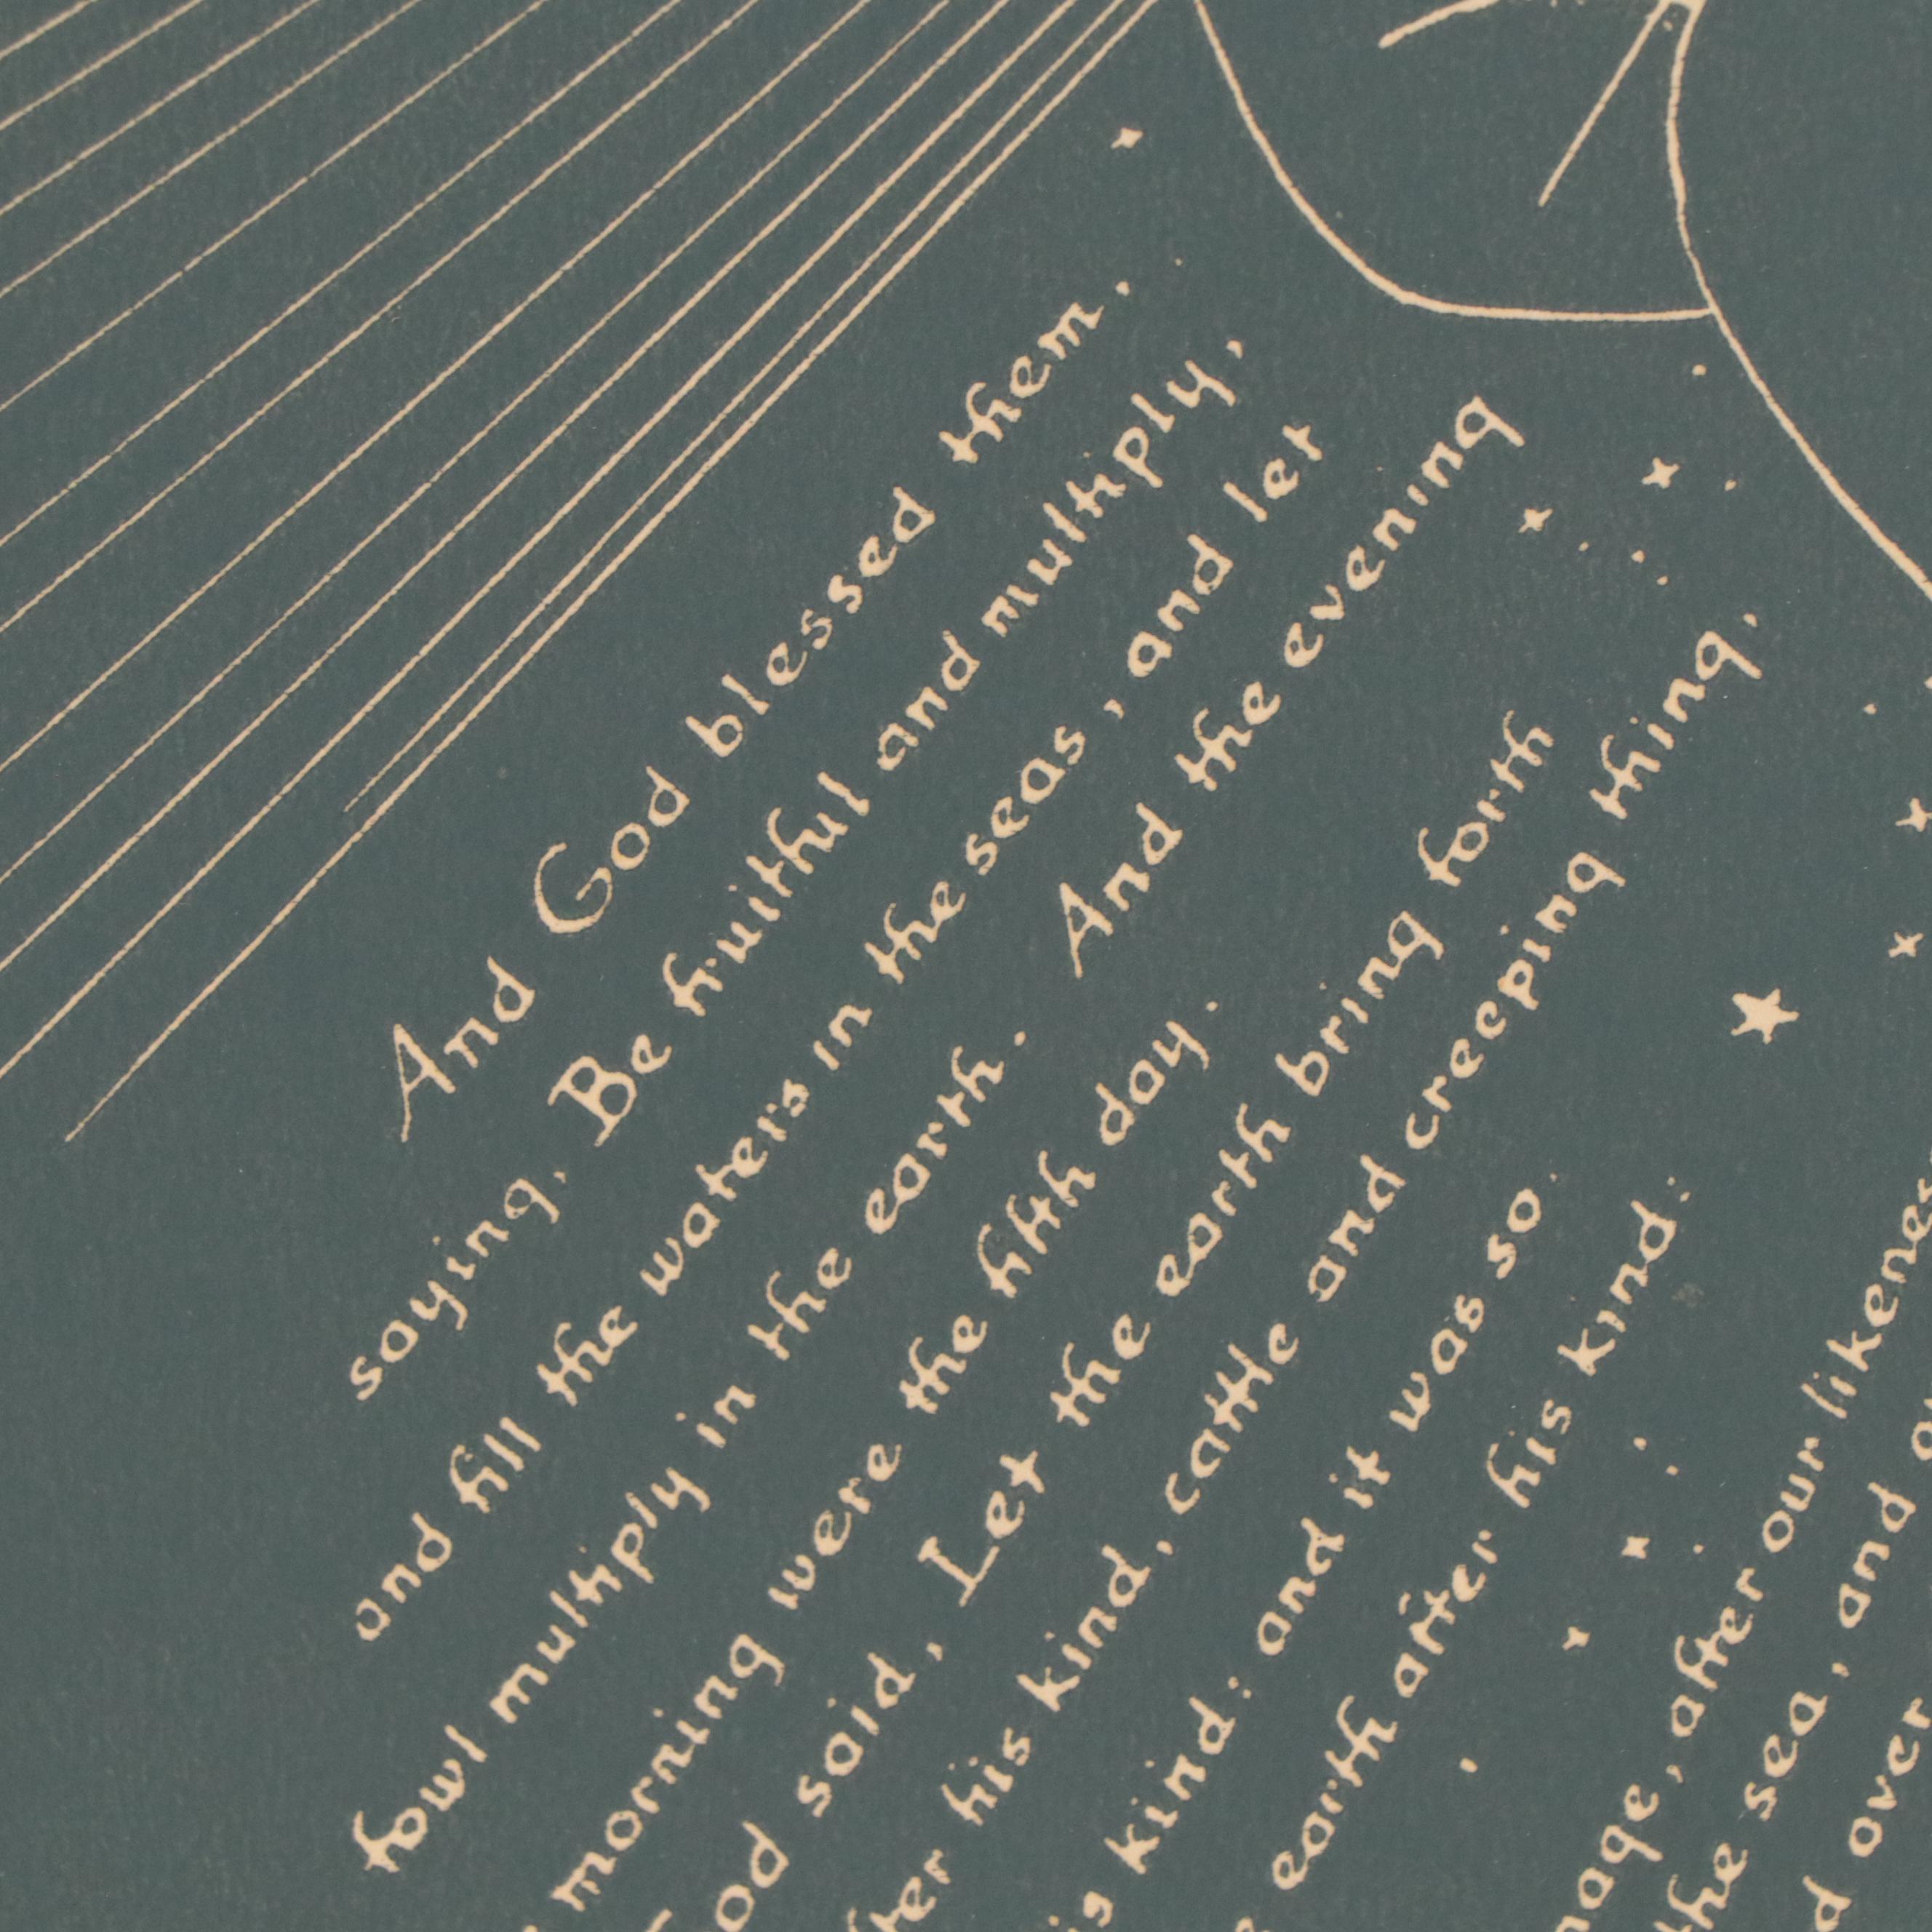 And God blessed them.
saying, Be fruitful and multiply,
and fill the waters in the seas, and let
fowl multiply in the earth. And the evening
morning were the fifth day.
God said, Let the earth bring forth
his kind, cattle and creeping thing,
kind: and it was so.
earth after his kind:
after our
the sea, and
over